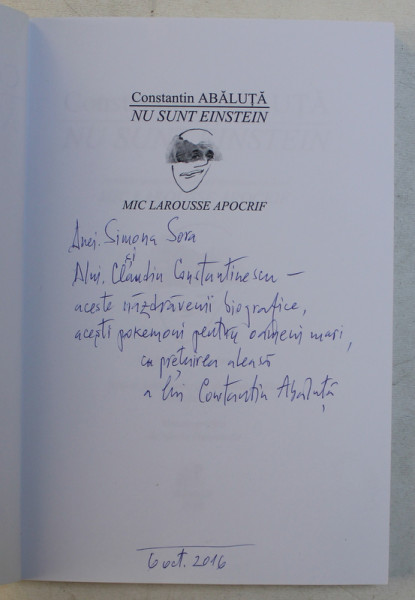 Constantin ABĂLUȚĂ
NU SUNT EINSTEIN
MIC LAROUSSE APOCRIF
Dnei. Simona Sora
și
Dlui. Claudiu Constantinescu –
aceste năzdrăvenii biografice,
acești pokemoni pentru oameni mari,
cu prețuirea aleasă
a lui Constantin Abăluță
6 oct. 2016